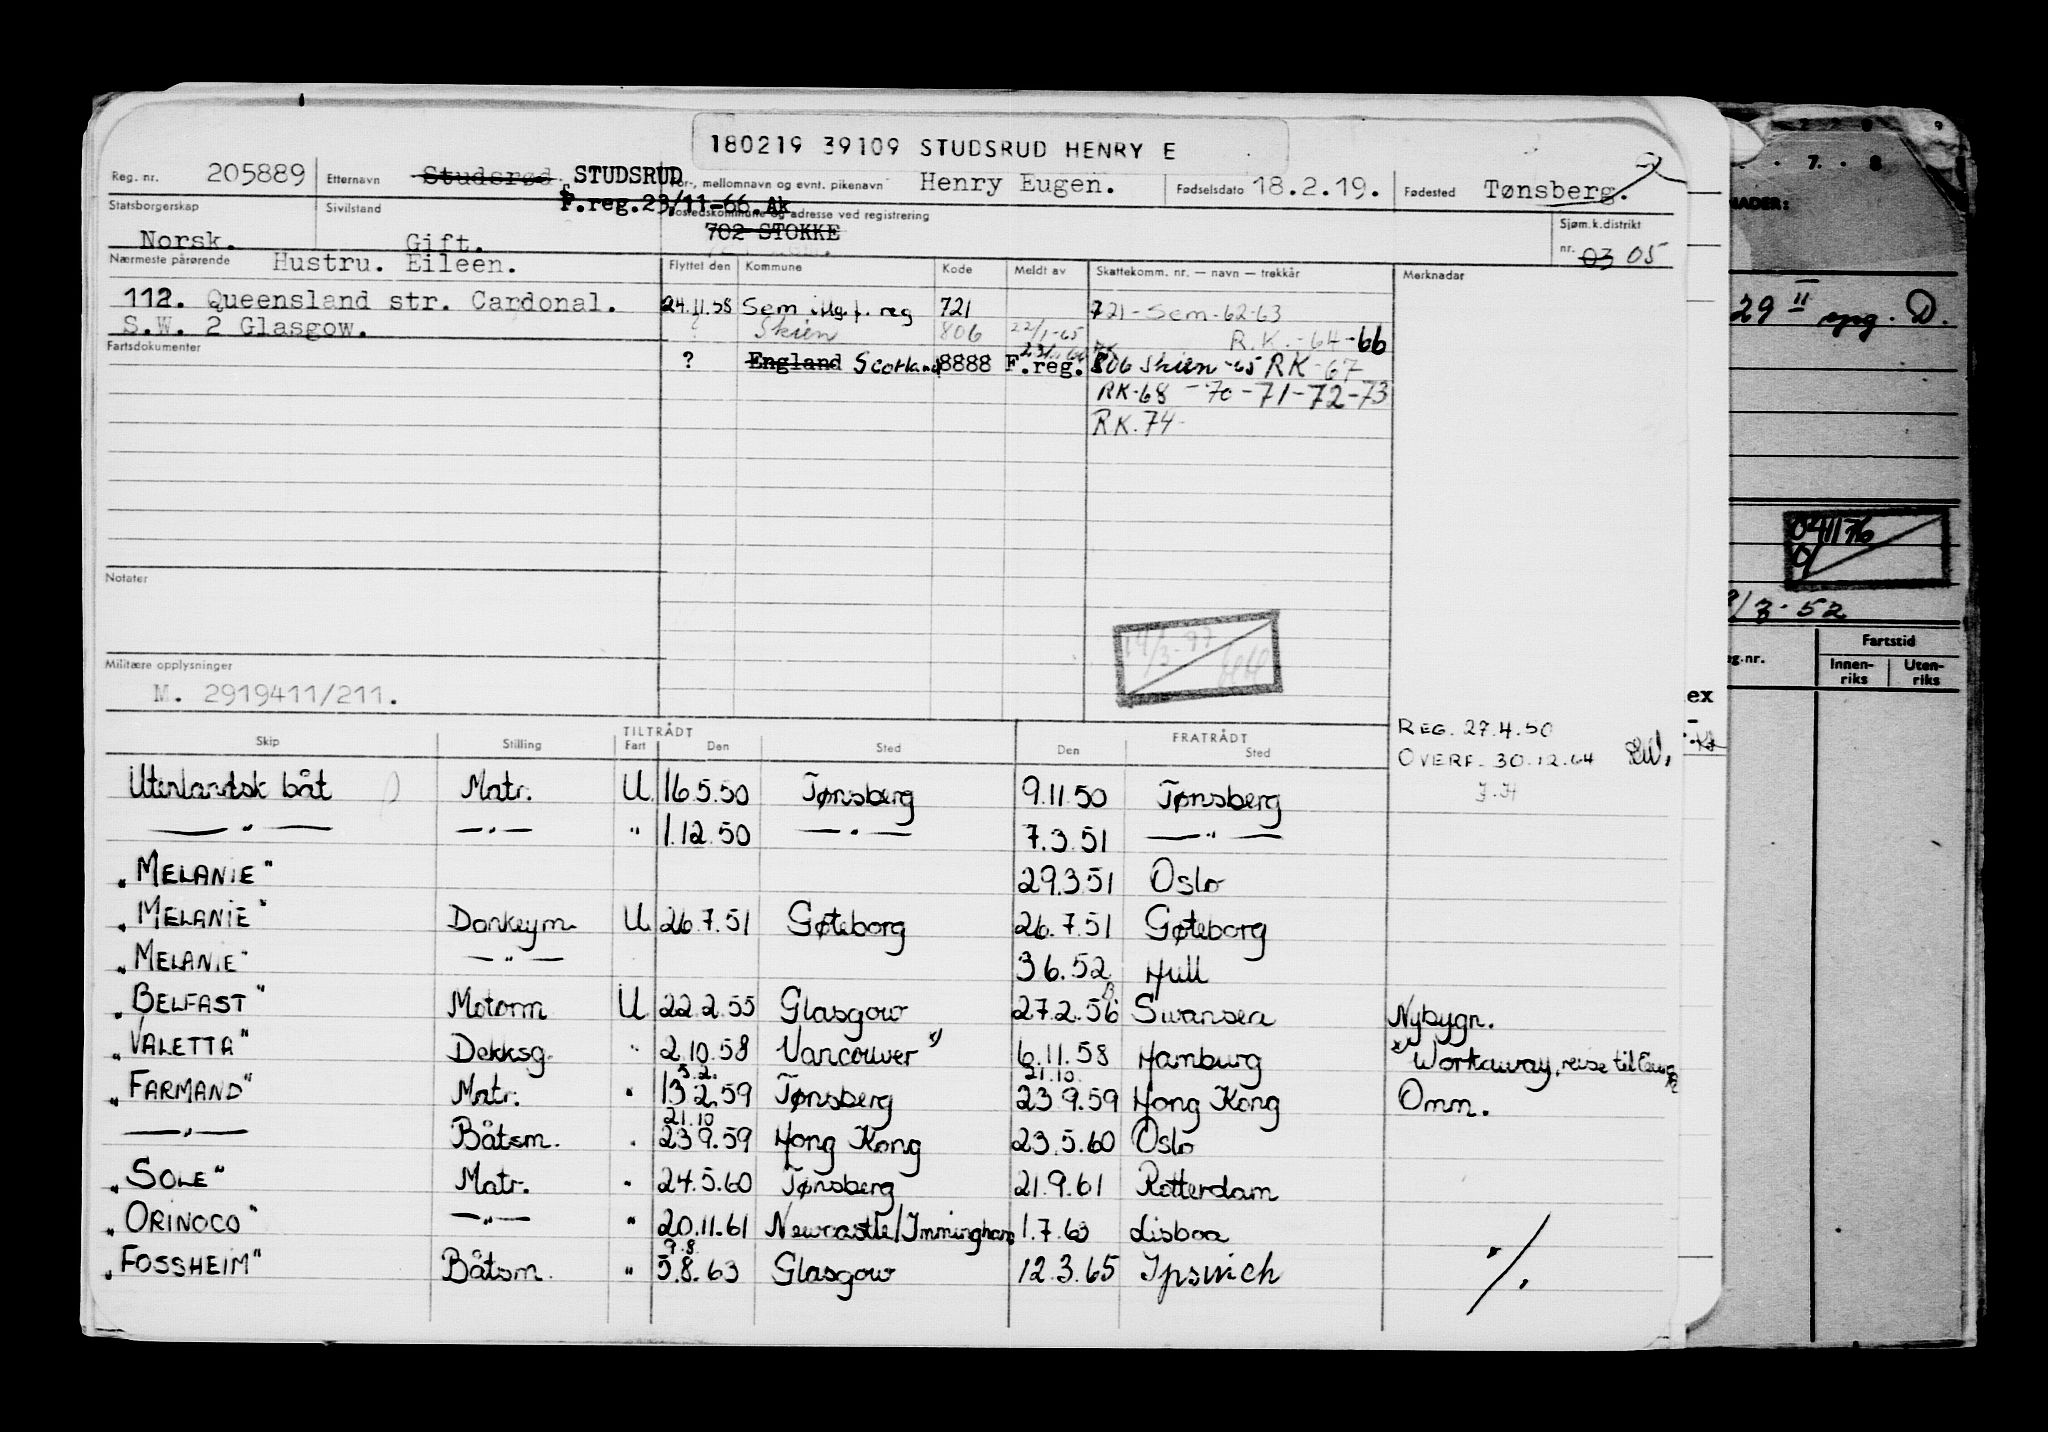 180219 39109 STUDSRUD HENRY E
Reg. nr. 205889 Etternavn Studsrød. STUDSRUD For-, mellomnavn og evnt. pikenavn Henry Eugen. Fødselsdato 18.2.19. Fødested Tønsberg.
F.reg.23/11-66.Ak
Statsborgerskap Norsk. Sivilstand Gift. Bostedskommune og adresse ved registrering 702 STOKKE Sjøm.k.distrikt nr. 03 05
Nærmeste pårørende Hustru. Eileen.
Flyttet den Kommune Kode Meldt av Skattekomm. nr. — navn — trekkår Merknader
112. Queensland str. Cardonal. 24.11.58 Sem iflg. f. reg 721 721 - Sem - 62-63
S.W. 2 Glasgow. ? Skien 806 22/1-65 R.K. -64-66
Fartsdokumenter ? England Scotland 8888 F.reg. 806 Skien -65 RK-67
RK-68 - 70 - 71 - 72 - 73
R.K. 74-
Notater
Militære opplysninger
M. 2919411/211.
REG. 27.4.50
OVERF. 30.12.64
J.H
TILTRÅDT FRATRÅDT
Skip Stilling Fart Den Sted Den Sted
Utenlandsk båt Matr. U 16.5.50 Tønsberg 9.11.50 Tønsberg
— " — — " — " 1.12.50 — " — 7.3.51 — " —
"MELANIE" 29.3.51 Oslo
"MELANIE" Donkeym. U 26.7.51 Gøteborg 26.7.51 Gøteborg
"MELANIE" — " — 3 6.52 Hull
"BELFAST" Motorm U 22.2.55 Glasgow 27.2.56 Swansea Nybygn.
"VALETTA" Dekksg. " 2.10.58 Vancouver x) 6.11.58 Hamburg x) Workaway, reise til Europa
5.2. 21.10
"FARMAND" Matr. " 13 2.59 Tønsberg 23 9.59 Hong Kong Omm.
21.10
— " — Båtsm. " 23 9.59 Hong Kong 23.5.60 Oslo
"SOLE" Matr. " 24.5.60 Tønsberg 21.9.61 Rotterdam
"ORINOCO" — " — " 20.11.61 Newcastle/Immingham 1.7.63 Lisboa
9.8.
"FOSSHEIM" Båtsm. " 5.8.63 Glasgow 12.3.65 Ipswich ./.
7. 8
NADER:
29 II D.
041176
/3-52
Fartstid
g.nr. Innenriks Utenriks
ex